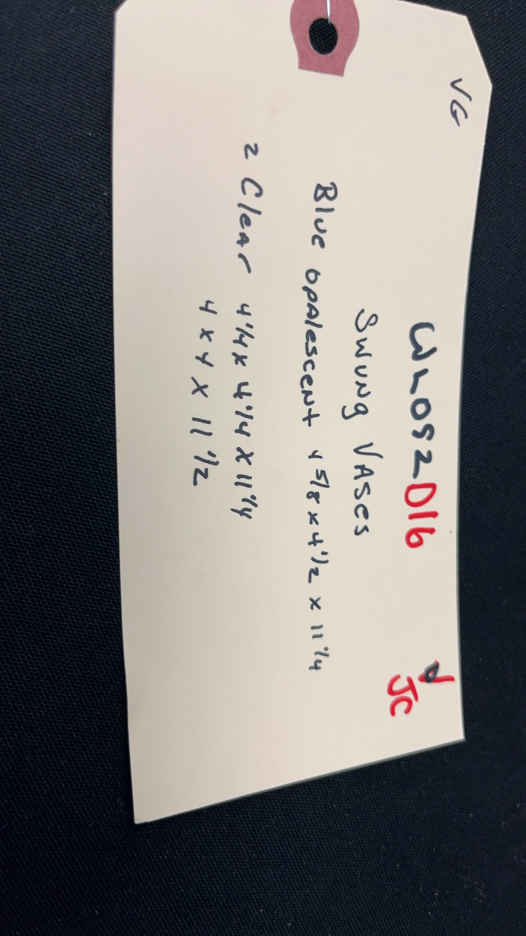 VG
WLOS2D16
JC
Swung Vases
Blue Opalescent 4 5/8 x 4 1/2 x 11 1/4
2 Clear 4 1/4 x 4 1/4 x 11 1/4
4 x 4 x 11 1/2